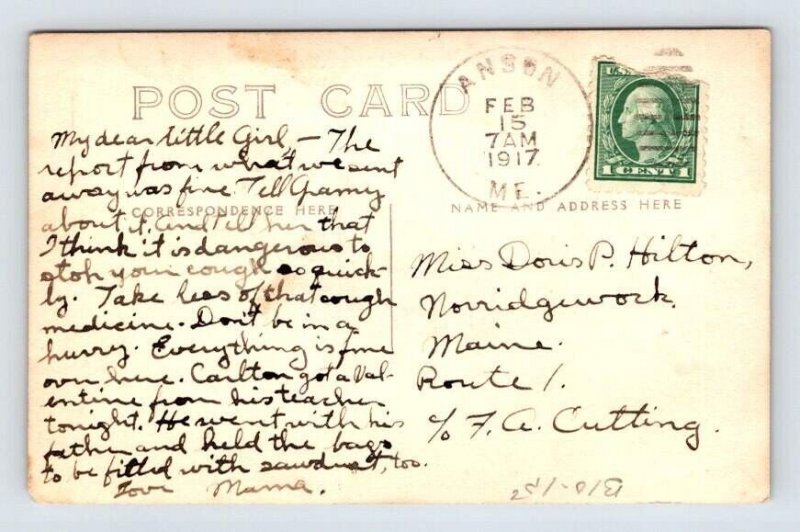 POST CARD
ANSON
FEB
15
7 AM
1917
ME.
U.S.
1 CENT 1
CORRESPONDENCE HERE
NAME AND ADDRESS HERE
My dear little Girl, — The
report from what we sent
away was fine. Tell Grammy
about it. And tell her that
I think it is dangerous to
stop your cough so quick-
ly. Take less of that cough
medicine. Don't be in a
hurry. Everything is fine
over here. Carlton got a Val-
entine from his teacher
tonight. He went with his
father and held the bags
to be filled with sawdust, too.
Love Mama.
Miss Doris P. Hilton,
Norridgewock.
Maine.
Route 1.
c/o F. A. Cutting.